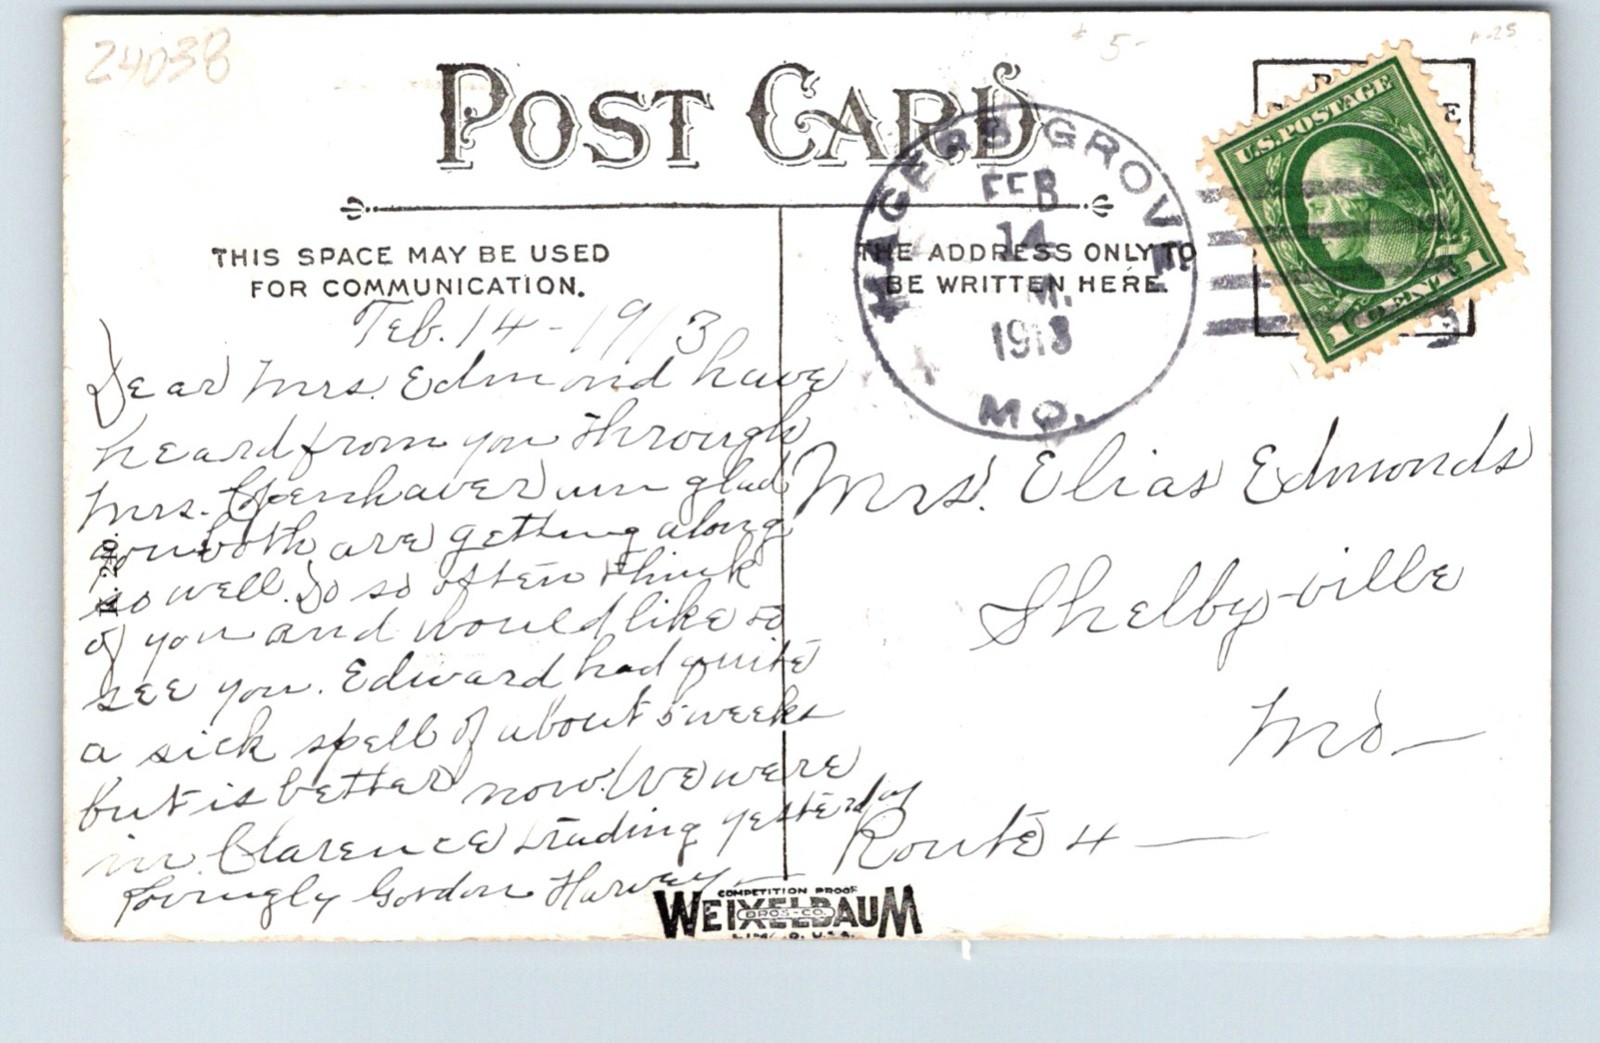 24038
$ 5-
POST CARD
U.S. POSTAGE
1 CENT 1
HAGERS GROVE
FEB
14
M.
1913
MO.
THIS SPACE MAY BE USED
FOR COMMUNICATION.
THE ADDRESS ONLY TO
BE WRITTEN HERE.
Feb. 14 - 1913
Dear Mrs. Edmond have
heard from you through
Mrs. am glad
you both are getting along
so well. Do so often think
of you and would like to
see you. Edward had quite
a sick spell of about 5 weeks
but is better now. We were
in Clarence trading yesterday
Lovingly Gordon Harvey
Mrs. Elias Edmonds
Shelby-ville
Mo
Route 4
COMPETITION PROOF
WEIXELBAUM
BROS. CO.
LIMA, O. U.S.A.